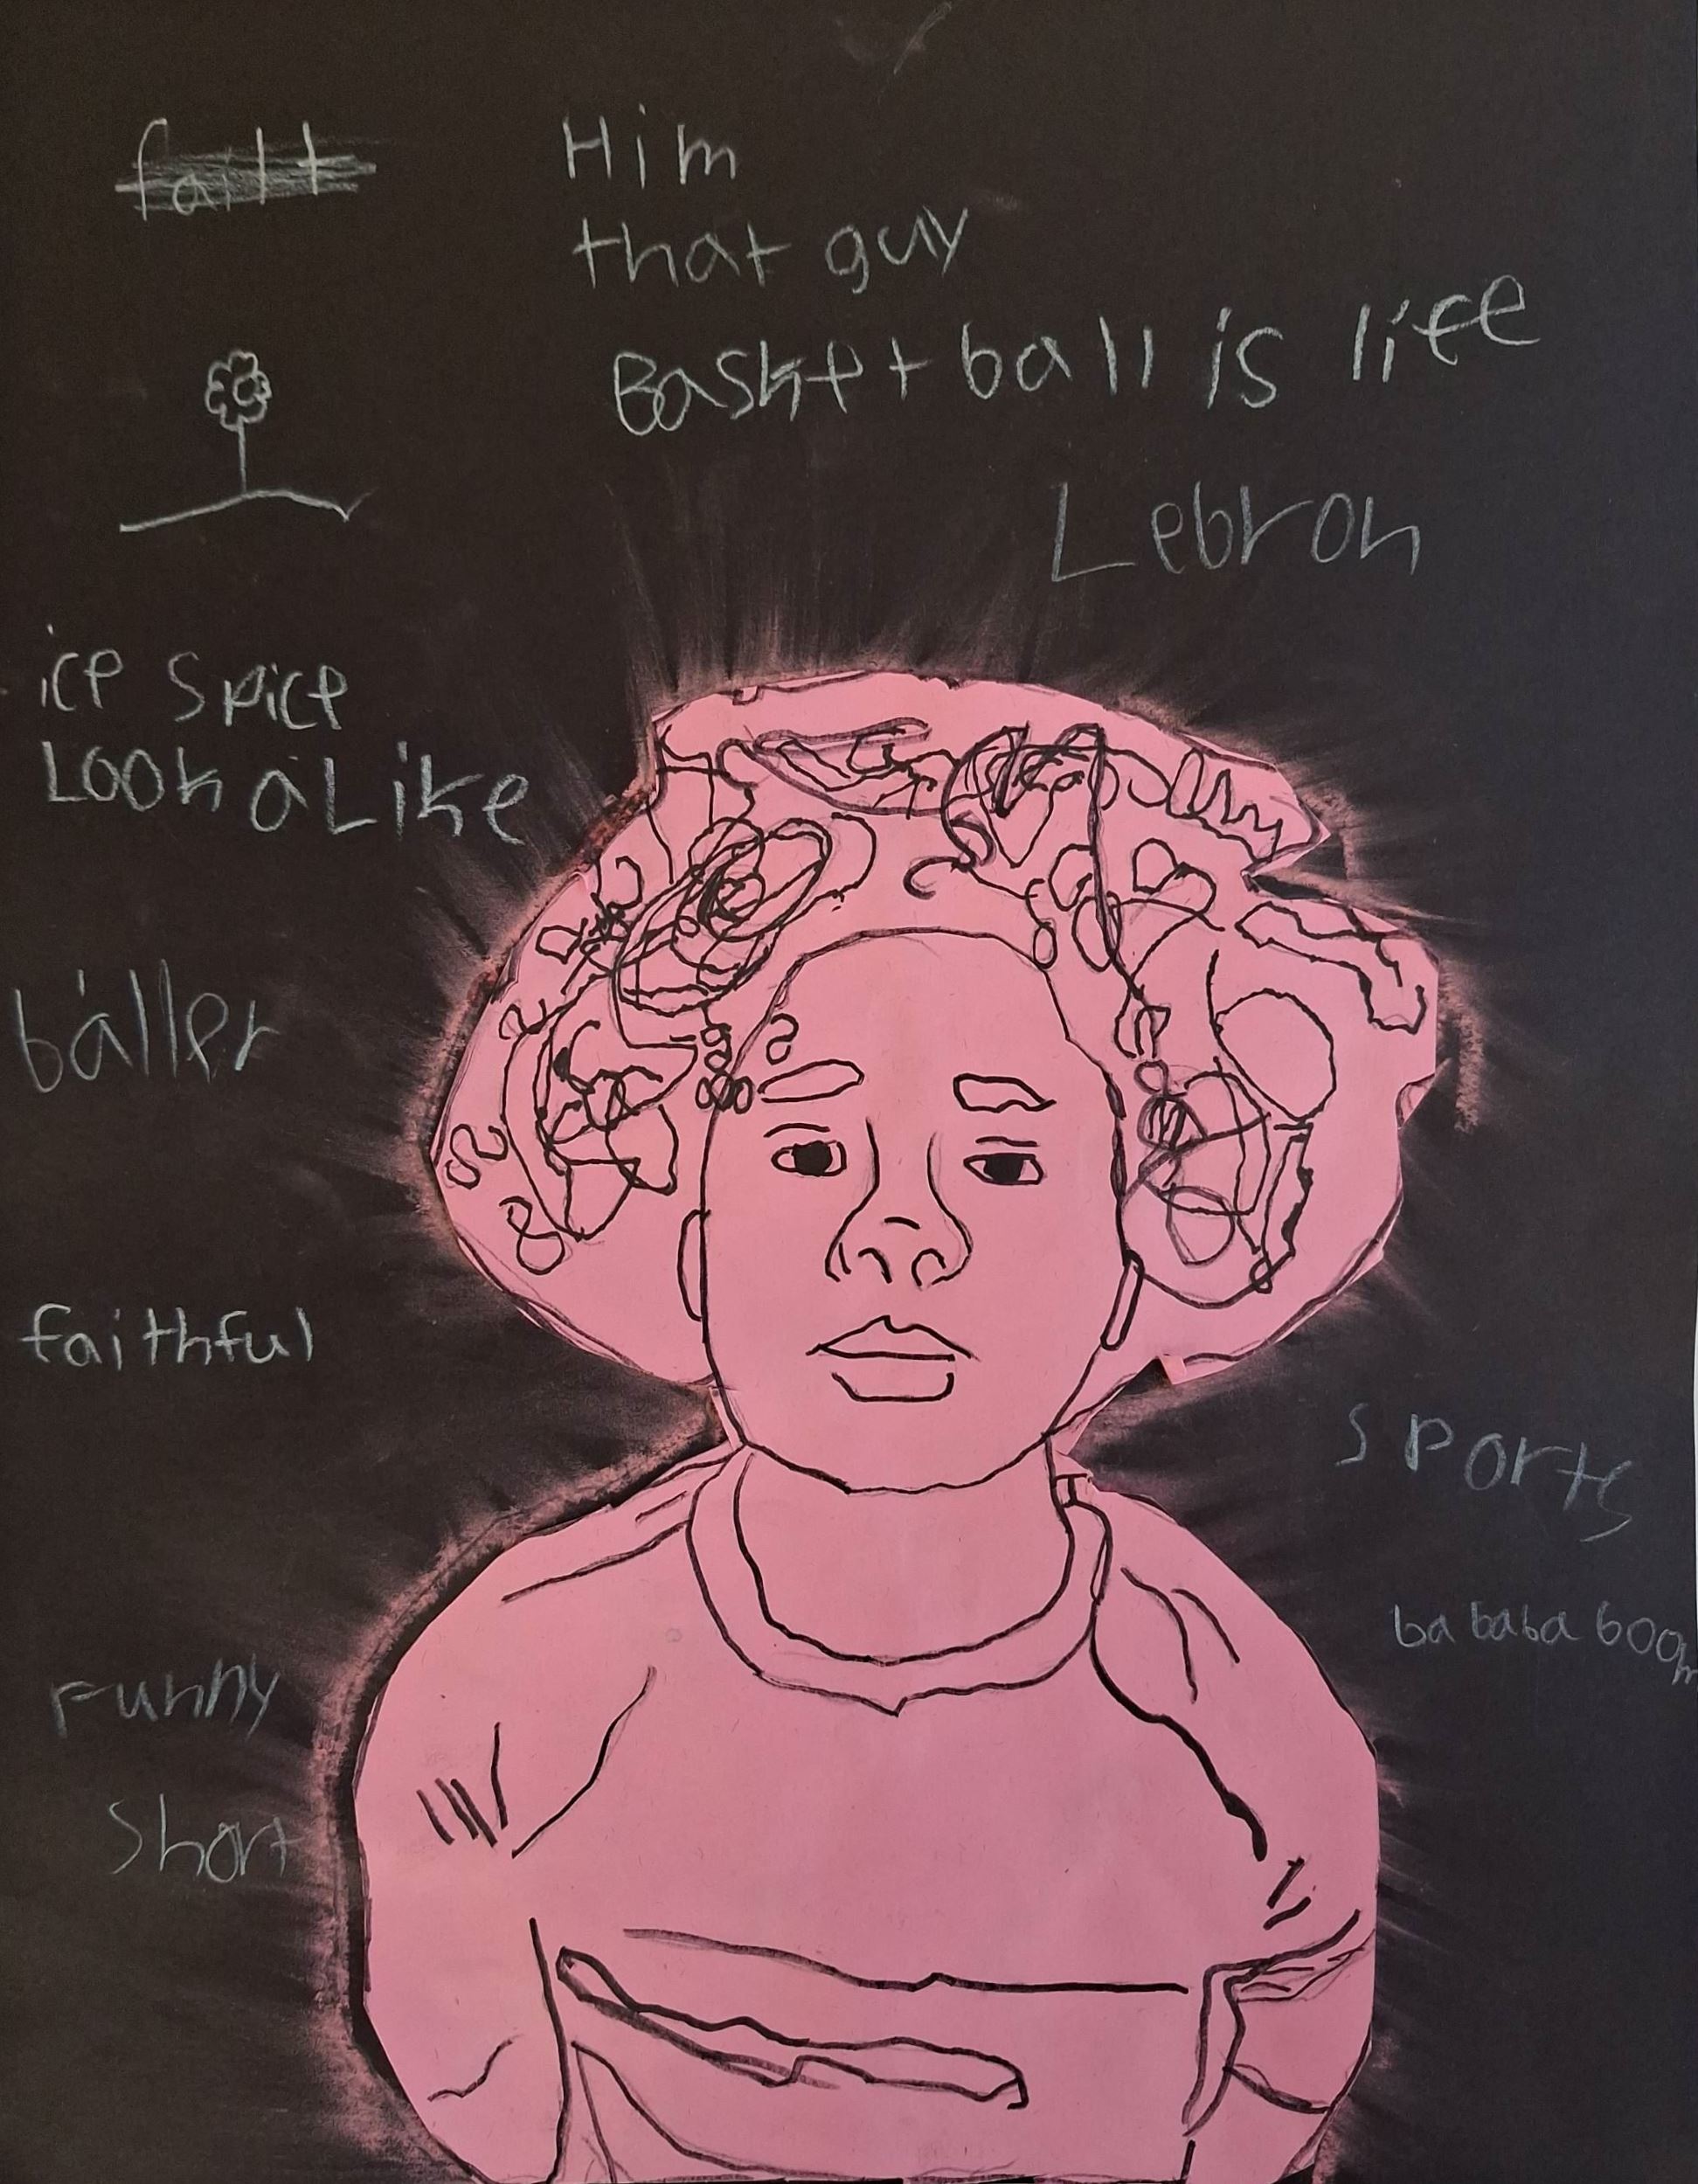 Him
that guy
Basketball is life
Lebron
ice spice
Look a Like
baller
faithful
sports
ba baba boom
Funny
short